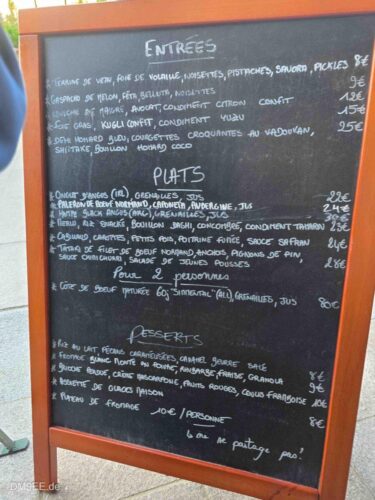 ENTRÉES
* TERRINE DE VEAU, FOIE DE VOLAILLE, NOISETTES, PISTACHES, SAVORA, PICKLES 8€
* GASPACHO DE MELON, FÊTA, BELLOTA, NOISETTES 9€
* CEVICHE DE MAIGRE, AVOCAT, CONDIMENT CITRON CONFIT 12€
* FOIE GRAS, KUGLI CONFIT, CONDIMENT YUZU 15€
* DEMI HOMARD BLEU, COURGETTES CROQUANTES AU VADOUVAN, 25€
SHIITAKE, BOUILLON HOMARD COCO
PLATS
* ONGLET D'ANGUS (IRL), GRENAILLES, JUS 22€
* PALERON DE BOEUF NORMAND, CAPONATA, AUBERGINE, JUS 24€
* HAMPE BLACK ANGUS (ARG), GRENAILLES, JUS 30€
* MERLU, RIZ SOUFFLÉ, BOUILLON DASHI, CONCOMBRE, CONDIMENT TAMARIN 23€
* CABILLAUD, CAROTTES, PETITS POIS, POITRINE FUMÉE, SAUCE SAFRAN 24€
* TARTARE DE FILET DE BOEUF NORMAND, ANCHOIS, PIGNONS DE PIN,
SAUCE CHIMICHURRI, SALADE DE JEUNES POUSSES 28€
Pour 2 personnes
* CÔTE DE BOEUF MATURÉE 60j "SIMMENTAL" (ALL), GRENAILLES, JUS 80€
DESSERTS
* RIZ AU LAIT, PÉCANS CARAMÉLISÉES, CARAMEL BEURRE SALÉ 8€
* FROMAGE BLANC MONTÉ AU ROUME, RHUBARBE, FRAISE, GRANOLA 9€
* BRIOCHE PERDUE, CRÈME MASCARPONE, FRUITS ROUGES, COULIS FRAMBOISE 10€
* ASSIETTE DE GLACES MAISON 8€
* PLATEAU DE FROMAGE 10€/PERSONNE
↳ ne se partage pas!
IDMSEE.de